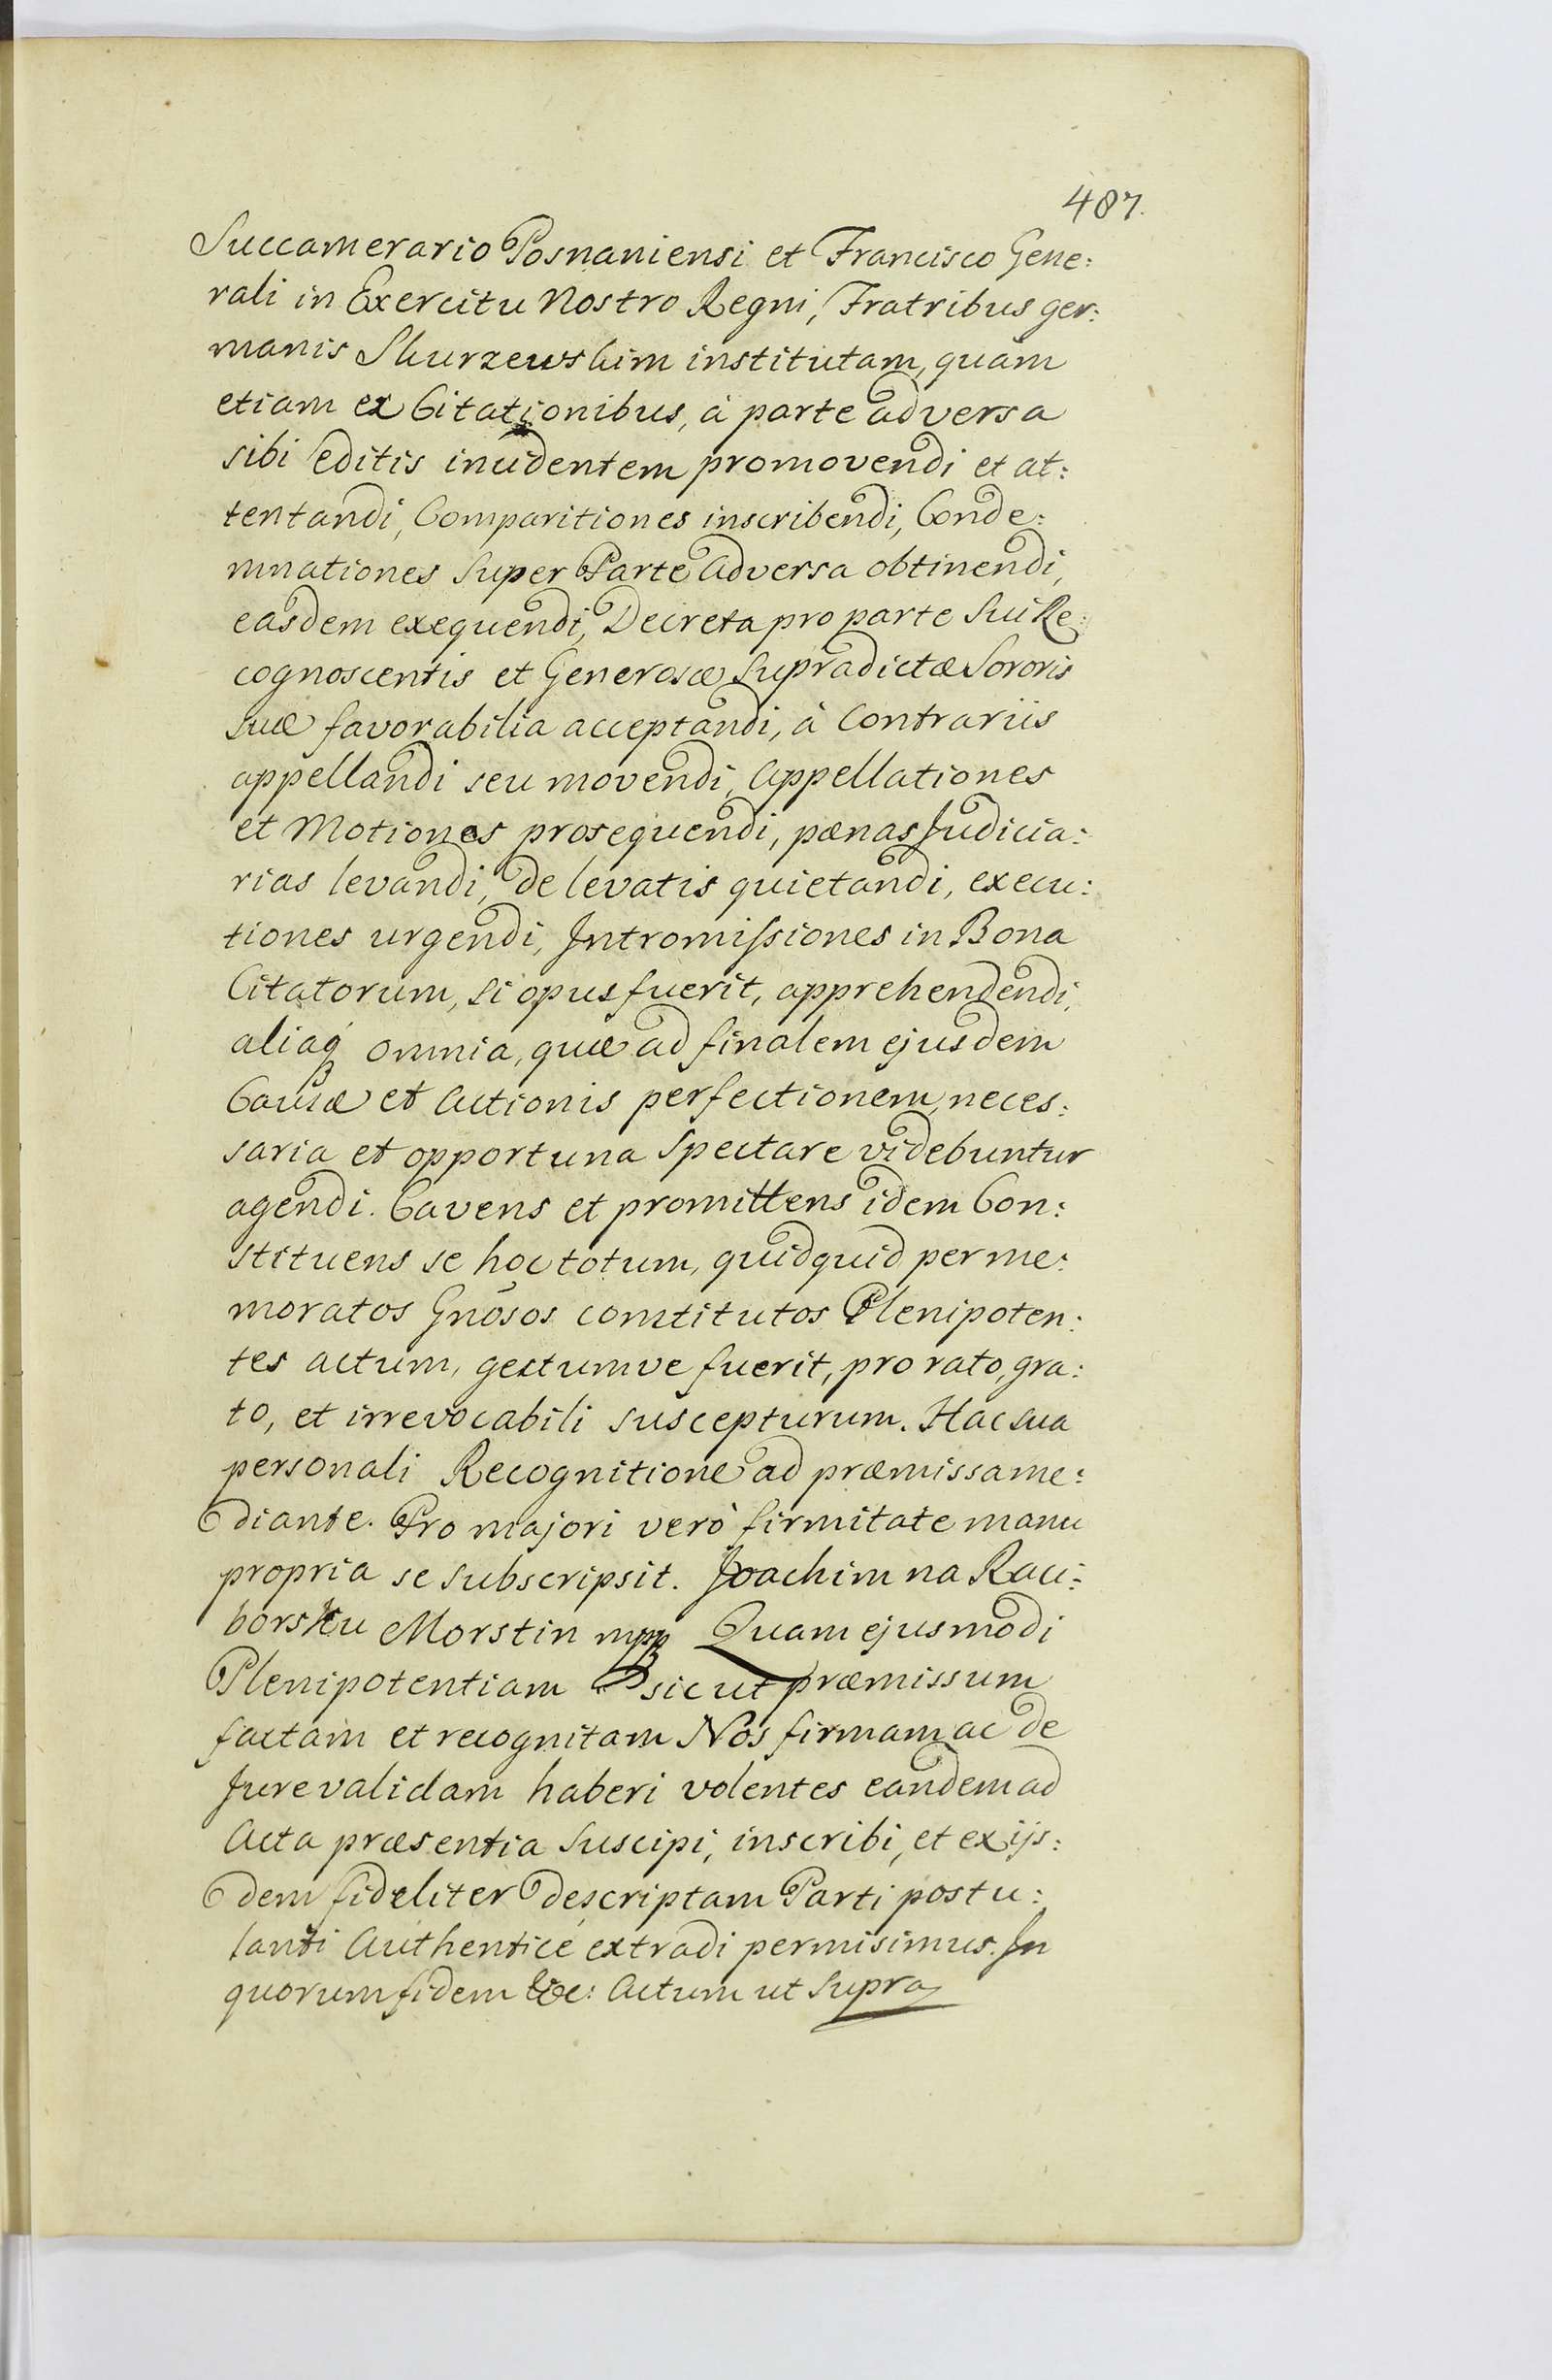 487.
Succamerario Posnaniensi et Francisco Gene:
rali in Exercitu Nostro Regni, Fratribus ger:
manis Skurzewskim institutam, quàm
etiam ex Citationibus, à parte adversa
sibi editis incidentem promovendi et at:
tentandi, Comparitiones inscribendi, Conde:
mnationes super Parte Adversa obtinendi,
easdem exequendi, Decreta pro parte sui Re:
cognoscentis et Generosæ supradictæ Sororis
suæ favorabilia acceptandi, à Contrariis
appellandi seu movendi, Appellationes
et Motiones prosequendi, pænas Judicia:
rias levandi, de levatis quietandi, execu:
tiones urgendi, Intromissiones in Bona
Citatorum, si opus fuerit, apprehendendi,
aliaq omnia, quæ ad finalem ejusdem
Causæ et Actionis perfectionem, neces:
saria et opportuna spectare videbuntur
agendi. Cavens et promittens idem Con:
stituens se hoc totum, quidquid per me:
moratos Gnosos constitutos Plenipoten:
tes actum, gestumve fuerit, pro rato, gra:
to, et irrevocabili suscepturum. Hac sua
personali Recognitione ad præmissa me:
diante. Pro majori verò firmitate manu
propria se subscripsit. Joachim na Raci:
borsku Morstin mpp Quam ejusmodi
Plenipotentiam sic ut præmissum
factam et recognitam Nos firmam ac de
Jure validam haberi volentes eandem ad
Acta præsentia suscipi, inscribi, et ex ijs:
dem fideliter descriptam Parti postu:
lanti Authenticè extradi permisimus. In
quorum fidem &c: Actum ut supra